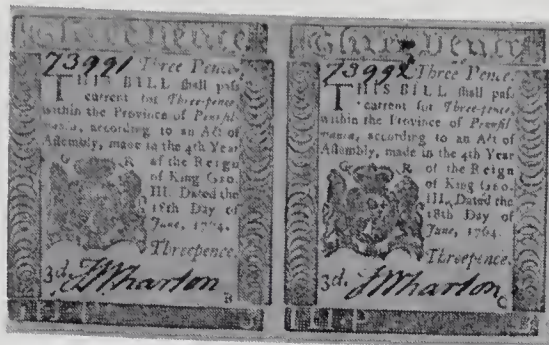 Three Pence
73991 Three Pence.
THIS BILL shall pass
current for Three-pence,
within the Province of Pennsil
mania, according to an Act of
Assembly, made in the 4th Year
G R of the Reign
of King GEO.
III. Dated the
18th Day of
June, 1764.
Threepence.
3d. Wharton
B
III. P
Three Pence
73992 Three Pence.
THIS BILL shall pass
current for Three-pence,
within the Province of Pennsil
mania, according to an Act of
Assembly, made in the 4th Year
G R of the Reign
of King GEO.
III. Dated the
18th Day of
June, 1764.
Threepence.
3d. Wharton
C
III. P